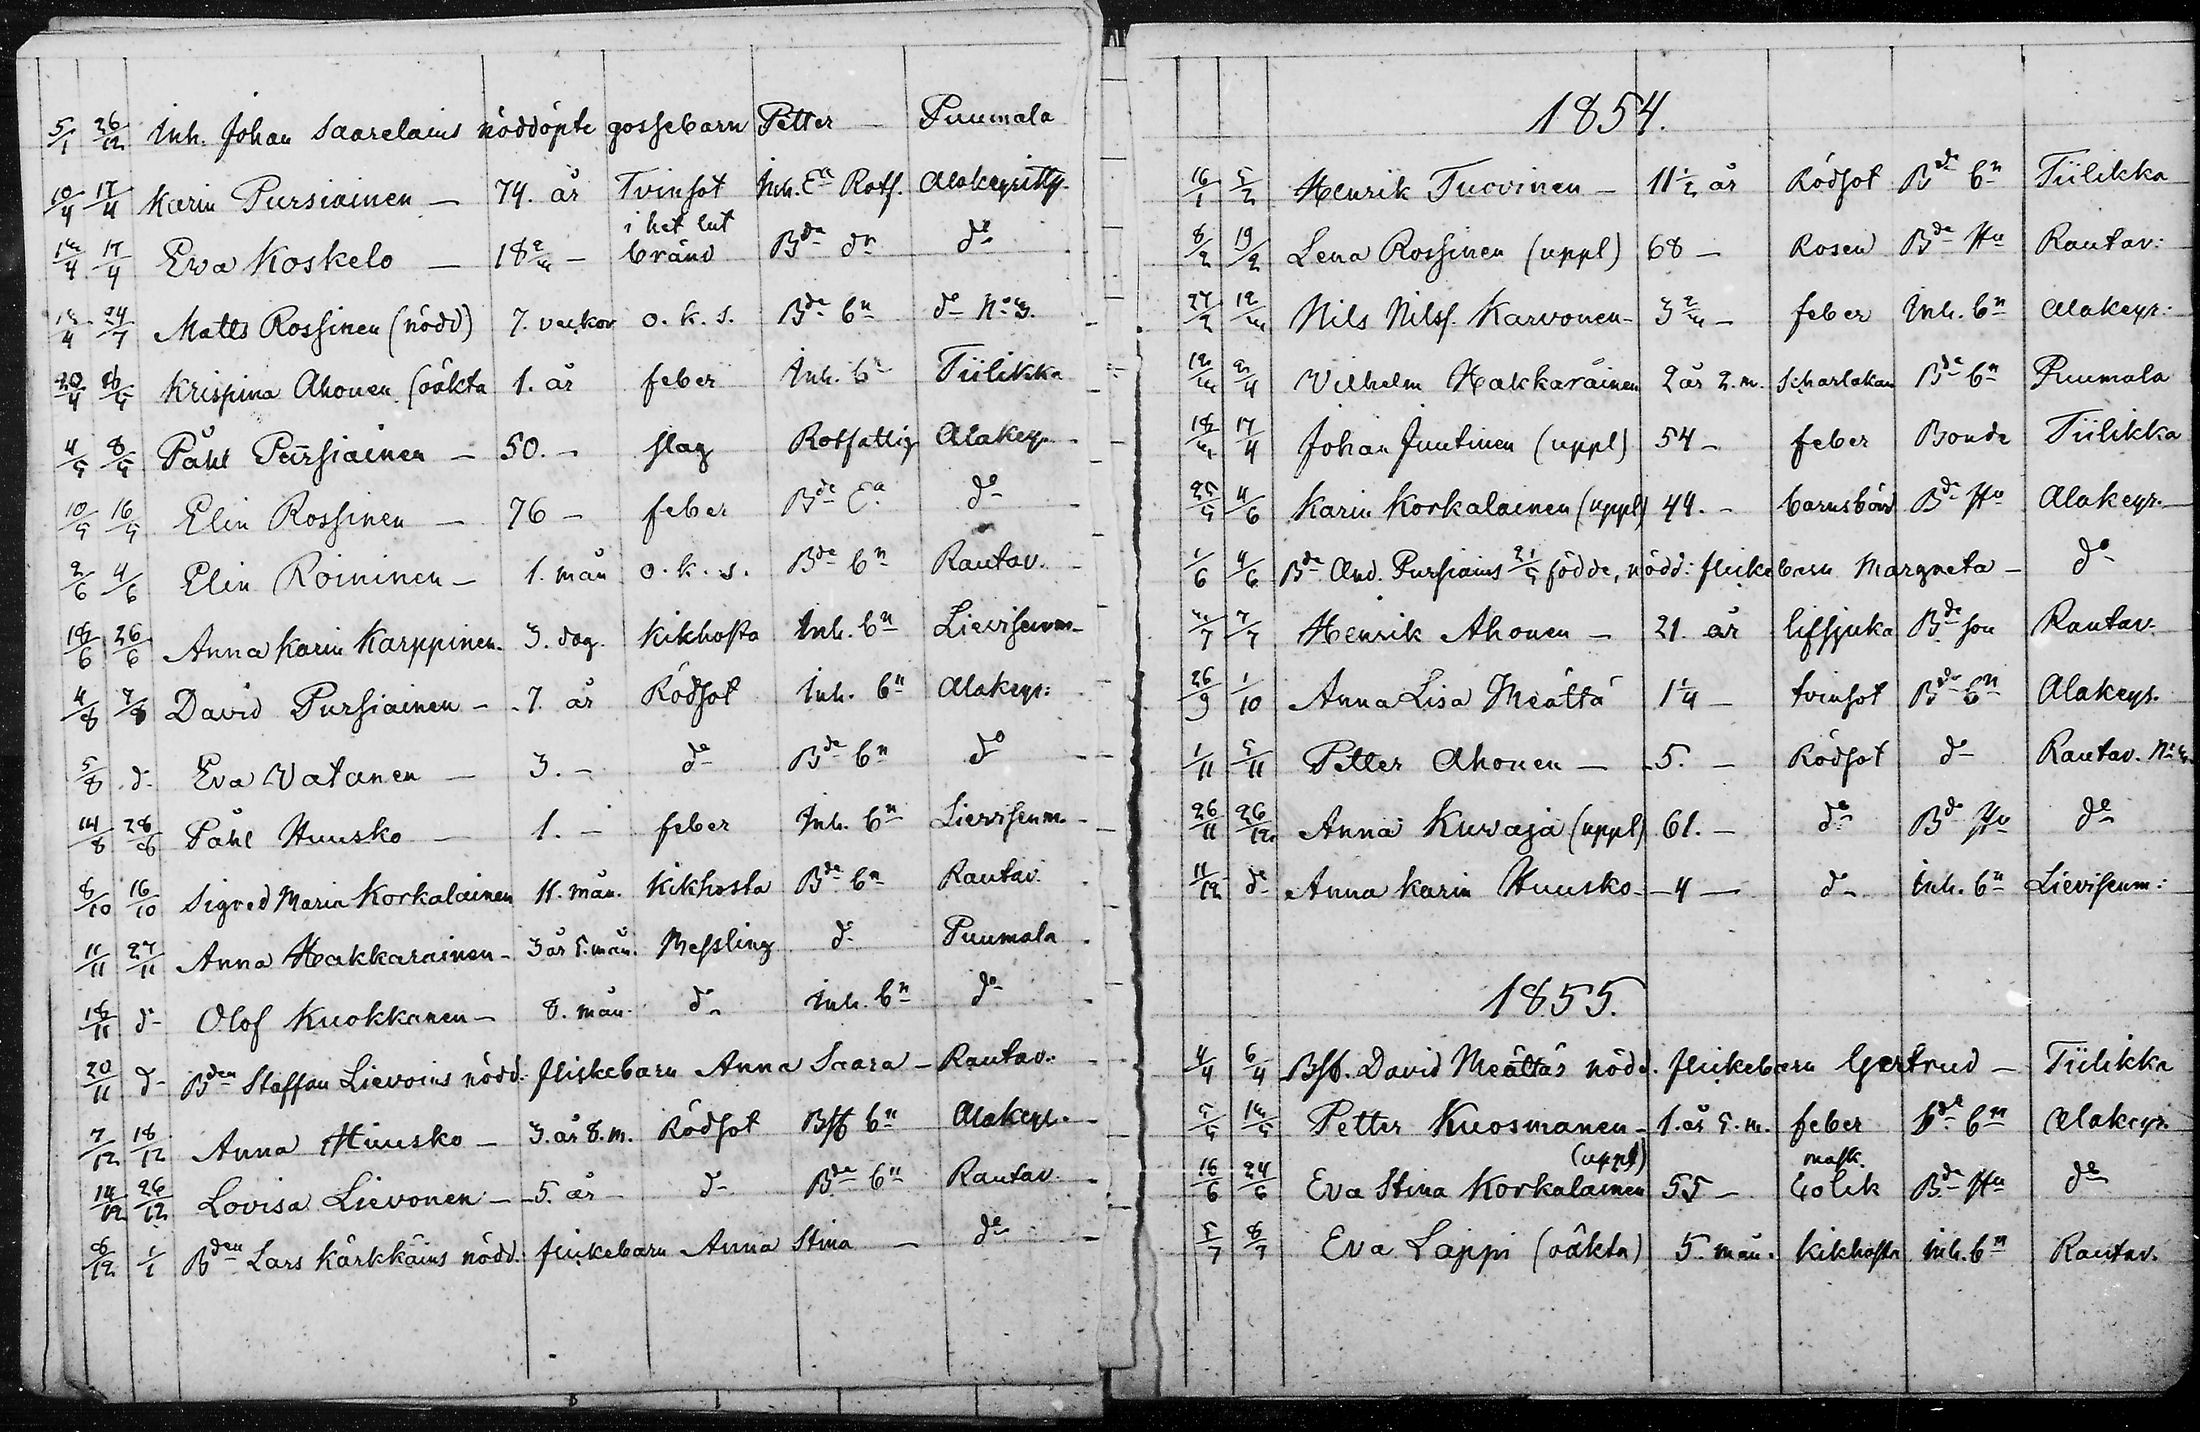 5/1 26/12 Inh. Johan Saarelains nöddöpte gossebarn Petter — Puumala
10/4 17/4 Karin Pursiainen — 74. år Tvinsot Inh. Ea Rotf. Alakeyritty.
i het lut
17/4 Eva Koskelo — bränd Bde dr do
24/7 Matts Rossinen (nödd) 7. veckor o. k. s. Bde bn do No 3.
20/4 Krispina Ahonen (oäkta 1. år feber Inh. bn Tiilikka
4/5 8/5 Påhl Pursiainen — 50. — slag Rotfattig Alakey.
10/5 16/5 Elin Rossinen — 76 — feber Bde Ea do
2/6 4/6 Elin Roininen — 1. mån o. k. s. Bde bn Rautav.
18/6 26/6 Anna Karin Karppinen. 3. dag. Kikhosta Inh. bn Lievisenm.
4/8 7/8 David Pursiainen — 7. år Rödsot Inh. bn Alakeyr:
5/8 do Eva Watanen — 3. — do Bde bn do
14/8 28/8 Påhl Huusko — 1. — feber Inh. bn Lievisenm.
8/10 16/10 Sigred Maria Korkalainen 11. mån. Kikhosta Bde bn Rautav.
11/11 27/11 Anna Hakkarainen — 3 år 5. mån. Messling do Puumala
18/11 do Olof Kuokkanen — 8. mån. do Inh. bn do
20/11 do Bden Staffan Lievoins nödd. flickebarn Anna Saara — Rautav:
7/12 18/12 Anna Huusko — 3. år 8. m. Rödsot Bst bn Alakeyr.
14/12 26/12 Lovisa Lievonen — 5. år do Bde bn Rautav.
26/12 1/1 Bden Lars Kärkkäins nödd: flickebarn Anna Stina — do
1854.
16/1 5/2 Henrik Tuovinen — 11 1/2 år Rödsot Bde bn Tiilikka
8/2 19/2 Lena Rossinen (uppl) 68 — Rosen Bde Hu Rautav:
27/2 12/3 Nils Nilss. Karvonen — 3 2/3 — feber Inh. bn Alakeyr:
12/3 2/4 Vilhelm Hakkaräinen 2 år 2. m. Scharlakan Bde bn Puumala
18/3 17/4 Johan Juutinen (uppl) 54 — feber Bonde Tiilikka
25/5 4/6 Karin Korkalainen (uppl) 44. — barnsbörd Bde Hu Alakeyr.
1/6 4/6 Bde And. Pursiains 21/5 födde, nödd: flickebarn Margreta — do
3/7 7/7 Henrik Ahonen — 21. år lifsjuka Bde son Rautav.
26/9 1/10 Anna Lisa Meättä 1 1/4 — tvinsot Bde bn Alakeyr.
1/11 5/11 Petter Ahonen — 5. — Rödsot do Rautav.
26/11 26/12 Anna Kuvaja (uppl) 61. — do Bde Hu do
11/12 do Anna Karin Huusko — 4 — do Inh. bn Lievisenm:
1855.
4/4 6/4 Bst. David Meättäs nödd. flickebarn Gertrud — Tiilikka
5/5 13/5 Petter Kuosmanen — 1. år 5. m. feber bde bn Alakeyr.
(uppl) mask.
16/6 24/6 Eva Stina Korkalainen 55 — Colik Bde Hu do
5/7 8/7 Eva Lappi (oäkta) 5. mån. Kikhosta Inh. bn Rautav.